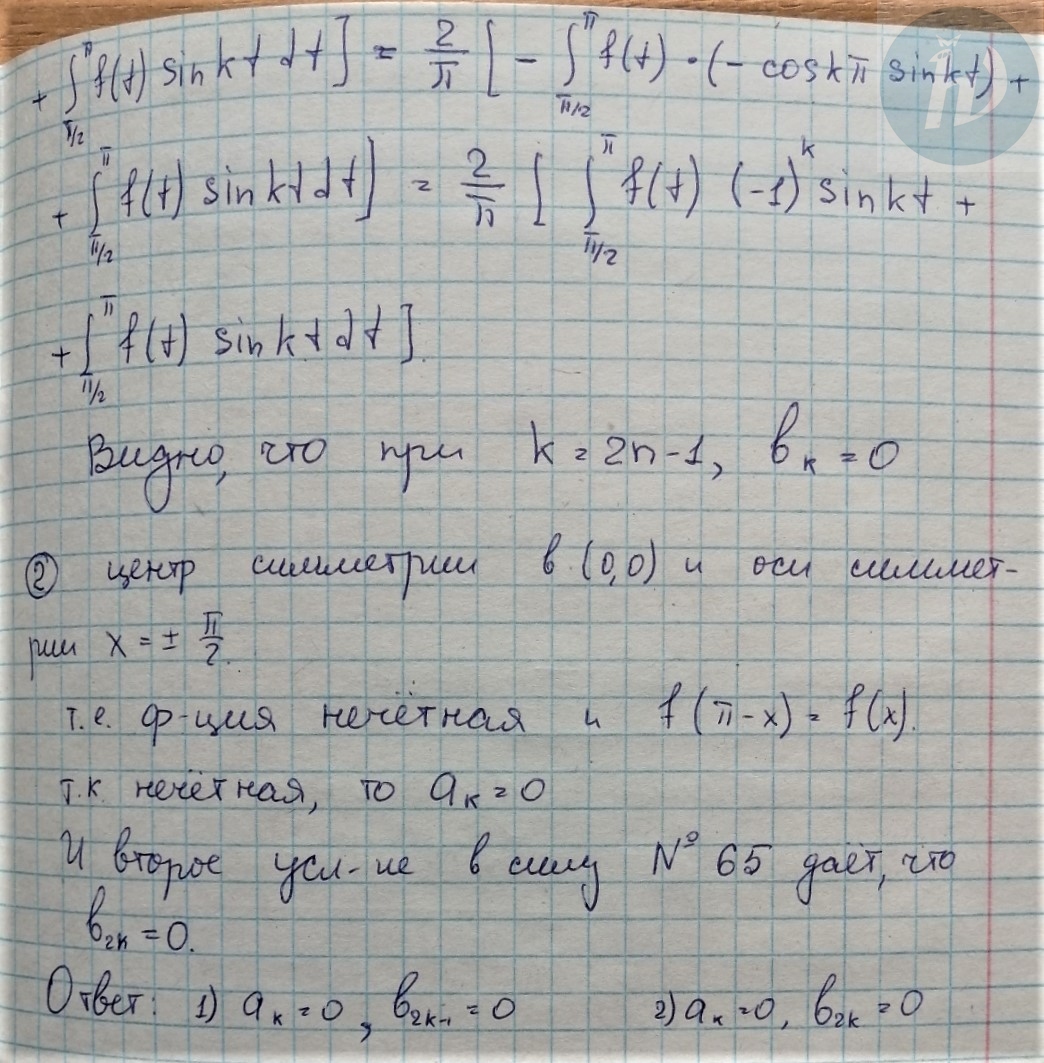 + ∫_{π/2}^{π} f(t) sin kt dt] = 2/π [ - ∫_{π/2}^{π} f(t) · (- cos kπ sin kt) +
+ ∫_{π/2}^{π} f(t) sin kt dt] = 2/π [ ∫_{π/2}^{π} f(t) (-1)^k sin kt +
+ ∫_{π/2}^{π} f(t) sin kt dt].
Видно, что при k = 2n-1, b_k = 0
② центр симметрии в (0,0) и оси симмет-
рии x = ± π/2.
т.е. ф-ция нечётная и f(π-x) = f(x).
т.к нечётная, то a_k = 0
И второе усл-ие в силу № 65 даёт, что
b_{2k} = 0.
Ответ: 1) a_k = 0, b_{2k-1} = 0 2) a_k = 0, b_{2k} = 0